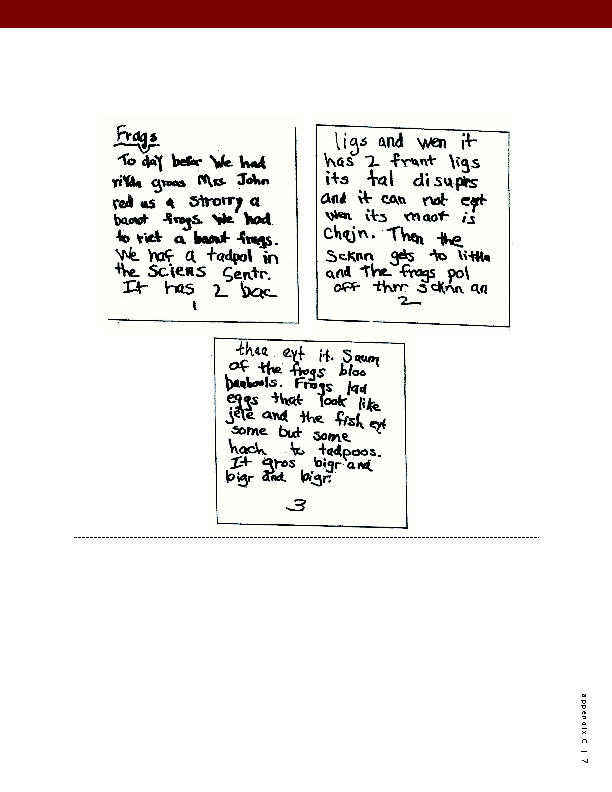 Frags
To day befer We had
ritda groos Mrs. John
red us a Strorry a
baowt frags. We had
to riet a baowt frags.
We haf a tadpol in
the Sciens Sentr.
It has 2 bac
1
ligs and wen it
has 2 frunt ligs
its tal disuprs
and it can not eyt
wen its maot is
Chajn. Then the
Scknn gets to little
and The frags pol
off thrr Scknn an
2
thaa eyt it. Saum
of the frogs bloo
baubools. Frogs lad
eggs that look like
jele and the fish eyt
some but some
hach to tadpoos.
It gros bigr and
bigr and bigr.
3
appendix C | 7